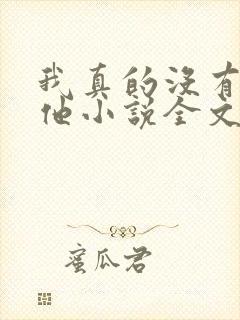 我真的没有
他小说全文
蜜瓜君